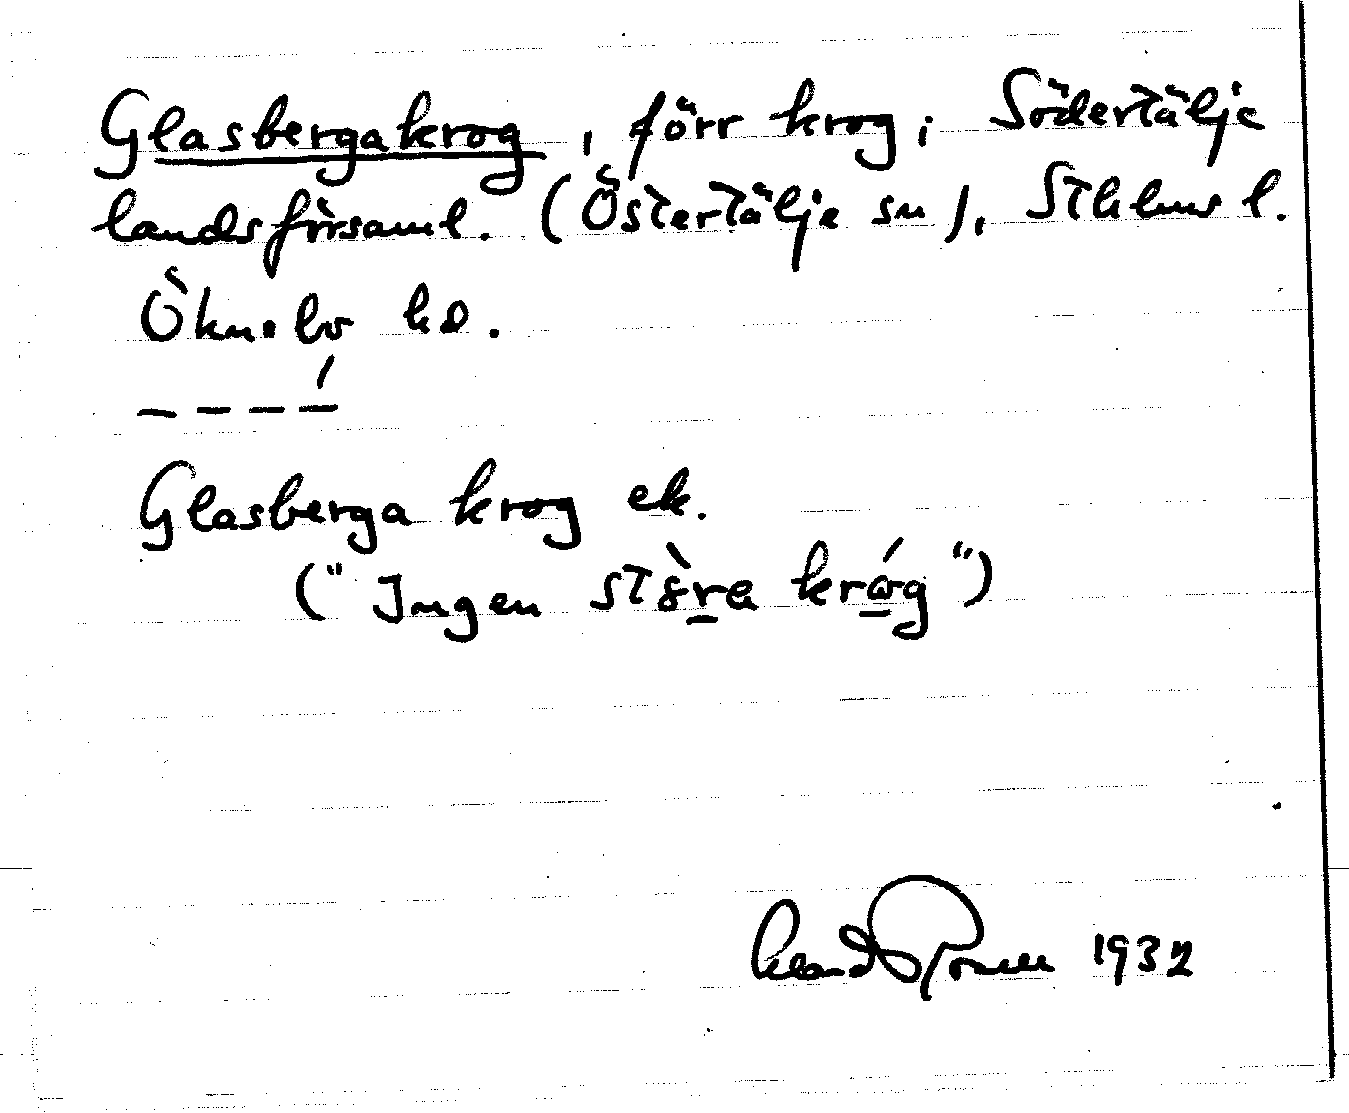 Glasbergakrog, förr krog, i Södertälje
landsförsaml. (Östertälje sn), Sthlms l.
Öknebo hd.
Glasberga krog ek.
("Ingen stòra kråg")
1932